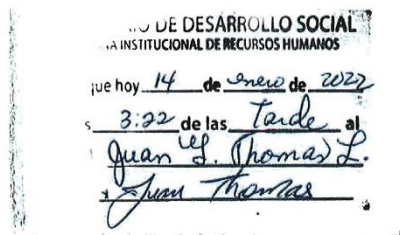 DE DESARROLLO SOCIAL
INSTITUCIONAL DE RECURSOS HUMANOS
que hoy 14 de enero de 2022
s 3:22 de las Tarde al
Juan Y. Thomas L.
Juan Thomas